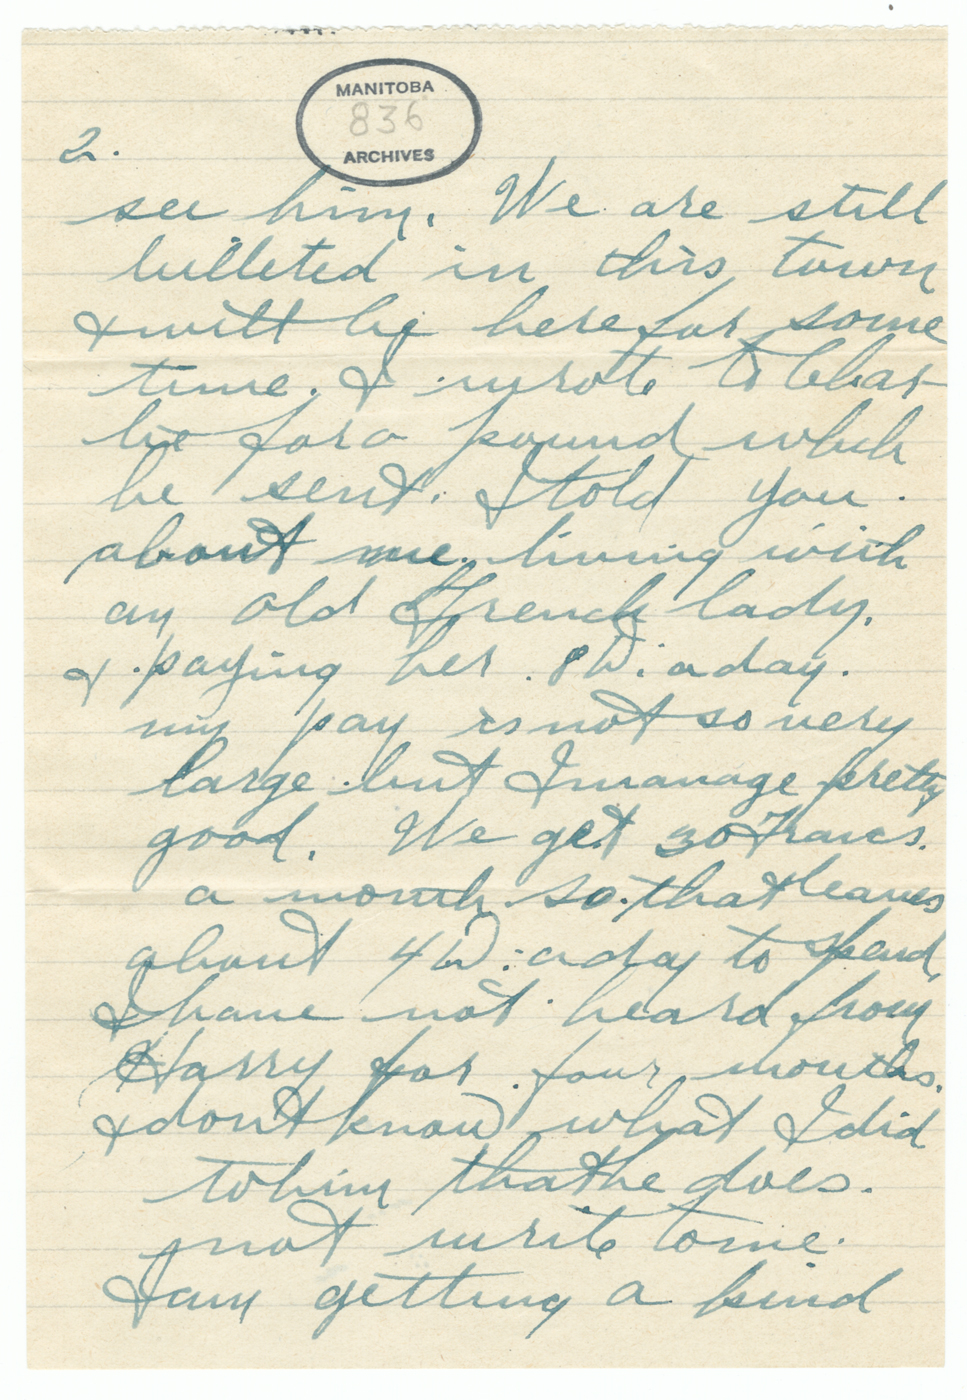 MANITOBA
836
ARCHIVES
2.
see him. We are still
billeted in this town
& will be here for some
time. I wrote to Char-
lie for a pound which
he sent. I told you
about me living with
an old French lady.
& paying her 8D. a day.
my pay is not so very
large but I manage pretty
good. We get 30 Francs.
a month so that leaves
about 4D. a day to spend
I have not heard from
Harry for four months.
& don't know what I did
to him that he does.
not write to me.
I am getting a kind